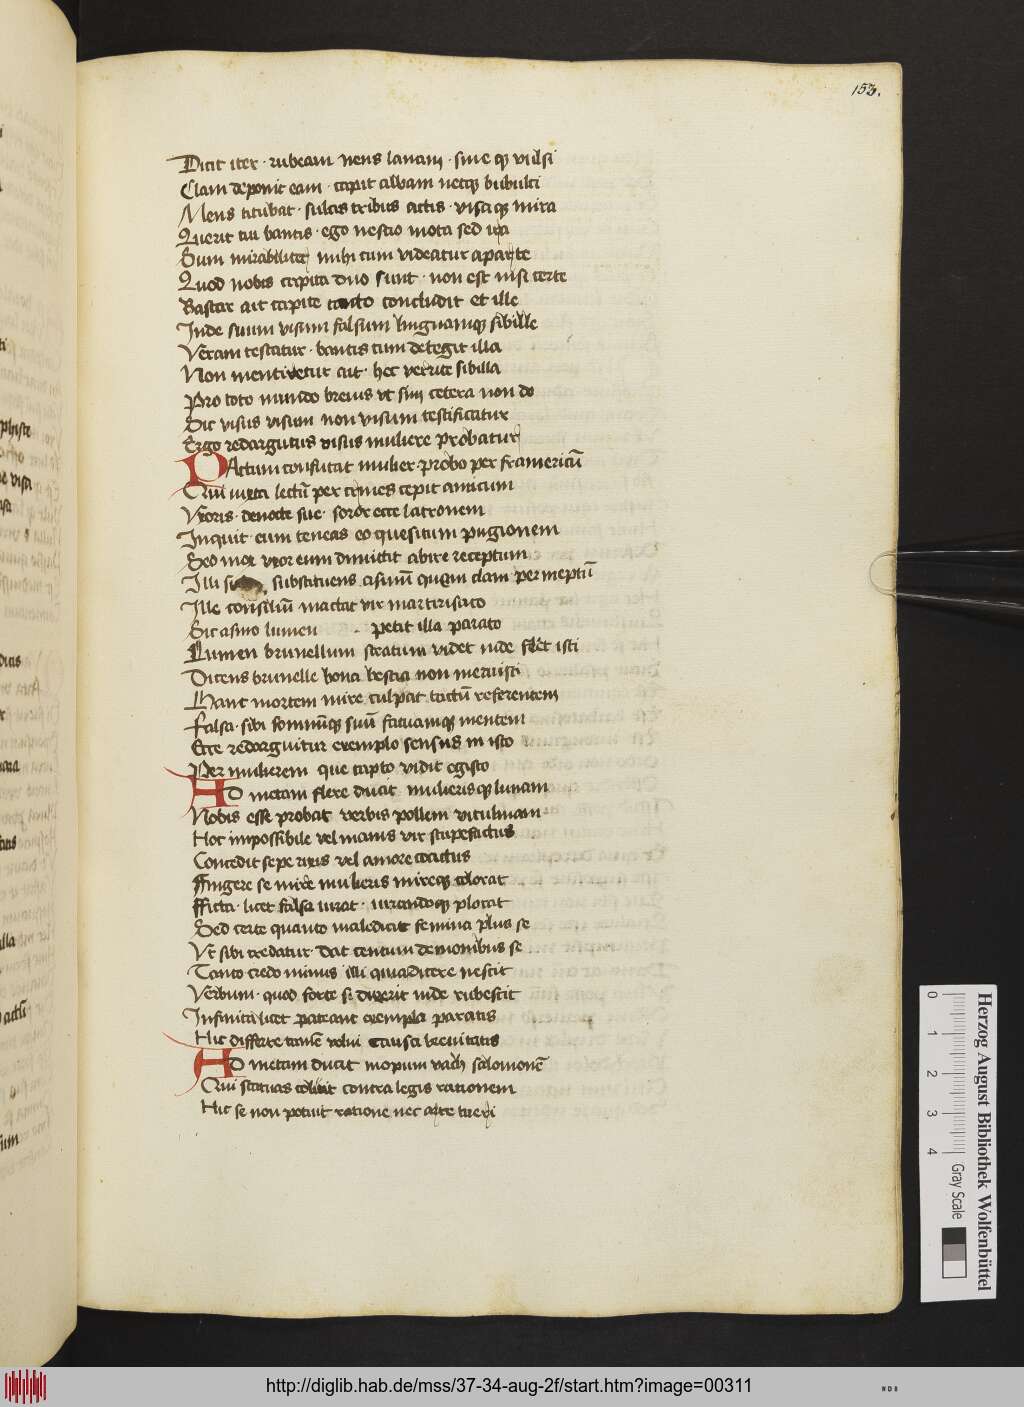 153.
Dicit iter · rubeam nens lanam · sine qꝫ vulsi
Clam deponit eam · capit albam netqꝫ bubulci
Mens titubat · sulcis tribus actis · visa qꝫ mira
Querit cui bantis · ego nescio mota sed ira
Sum mirabiliter mihi cum videatur aparte
Quod nobis capita duo sunt · non est nisi certe
Bastar ait capite tacto concludit et ille
Inde suum visum falsum linguamqꝫ sibille
Veram testatur · bantis tum detegit illa
Non mentiretur ait · hec verute sibilla
Pro toto mundo breuis vt sim cetera non do
Sic visus visum non visum testificatur
Ergo redargutus visus muliere probatur
PActum confutat mulier probo per framericū
Qui iuxta lectū per crines cepit amicum
Vxoris · de nocte sue · soror ecce latronem
Inquit eum teneas eo quesitum pugionem
Sed mox vxor eum dimittit abire receptum
Illi substituens asinū quem clam
Ille consiliū mactat vir martirisato
Sic asino lumen petit illa parato
Lumen brunellum stratum videt inde flēt isti
Dicens brunelle bona bestia non meruisti
Hanc mortem mire culpat tactū referentem
Falsa · sibi somnūqꝫ suū fatuamqꝫ mentem
Ecce redarguitur exemplo sensus in isto
Per mulierem que capto vidit egisto
AD metam flexe ducit mulierisqꝫ lunam
Nobis esse probat verbis pellem vitulinam
Hoc impossibile vel inanis vir stupefactus
Concedit sepe rixis vel amore coactus
Ffingere se mire mulieris mireqꝫ colorat
Fficta · licet falsa iurat · iurandoqꝫ plorat
Sed certe quanto maledicit femina plus se
Vt sibi credatur dat centum demonibus se
Tanto credo minus illi quia dicere nescit
Verbum · quod forte si dixerit inde rubescit
Infinita licet pateant exempla paratis
Hic differre tamē volui causa breuitatis
AD metam ducit mopum vach salomonē
Qui statuas coluit contra legis rationem
Hic se non potuit ratione nec arte tueri
Herzog August Bibliothek Wolfenbüttel
0 1 2 3 4 Gray Scale
http://diglib.hab.de/mss/37-34-aug-2f/start.htm?image=00311